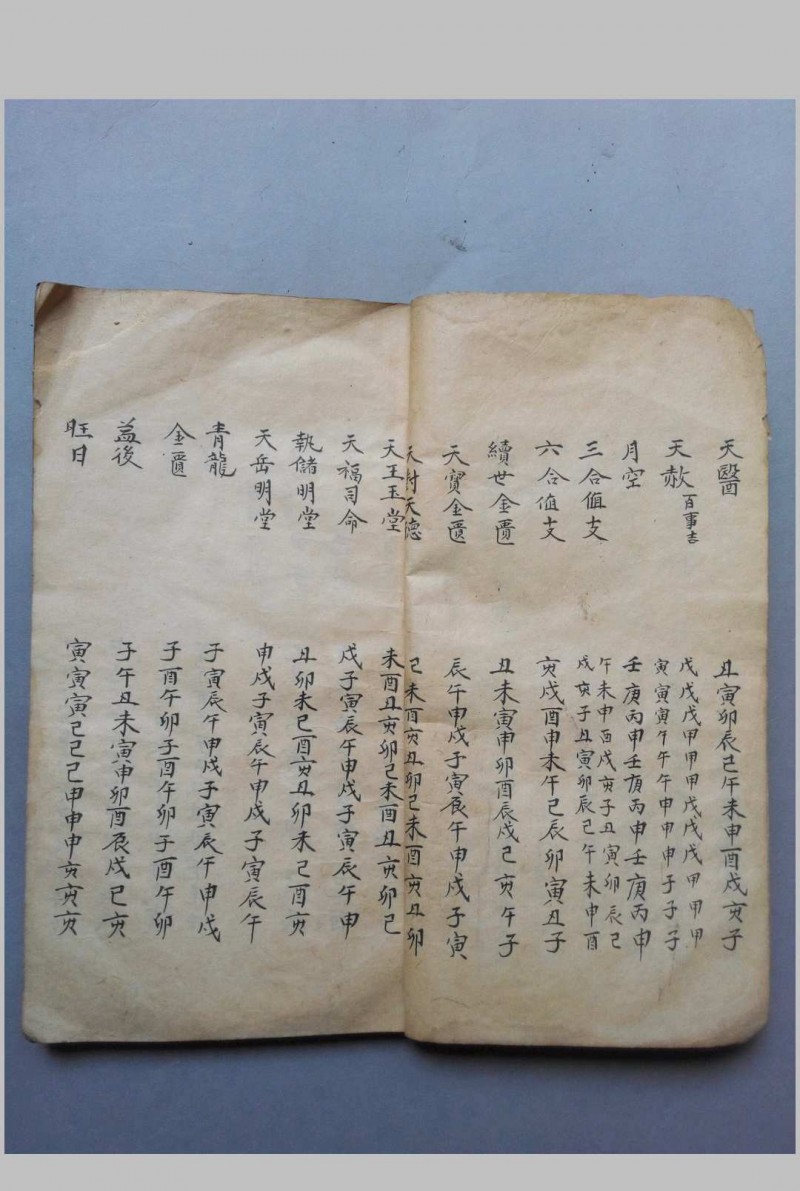 天醫 丑寅卯辰巳午未申酉戌亥子
天赦 百事吉 戊戊戊甲甲甲戊戊戊甲甲甲
寅寅寅午午午申申申子子子
月空 壬庚丙甲壬庚丙甲壬庚丙甲
三合值支 午未申酉戌亥子丑寅卯辰巳
戌亥子丑寅卯辰巳午未申酉
六合值支 亥戌酉申未午巳辰卯寅丑子
續世金匱 丑未寅申卯酉辰戌巳亥午子
天寶金匱 辰午申戌子寅辰午申戌子寅
天對天德 巳未酉亥丑卯巳未酉亥丑卯
天王玉堂 未酉丑亥卯巳未酉丑亥卯巳
天福司命 戌子寅辰午申戌子寅辰午申
執儲明堂 丑卯未巳酉亥丑卯未巳酉亥
天岳明堂 申戌子寅辰午申戌子寅辰午
青龍 子寅辰午申戌子寅辰午申戌
金匱 子酉午卯子酉午卯子酉午卯
益後 子午丑未寅申卯酉辰戌巳亥
旺日 寅寅寅巳巳巳申申申亥亥亥